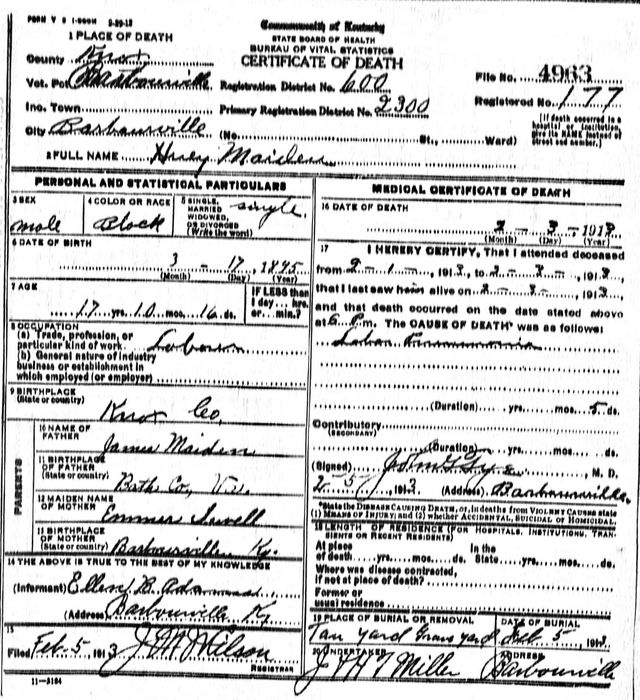 FORM V S 1-500M 3-29-12
Commonwealth of Kentucky
STATE BOARD OF HEALTH
BUREAU OF VITAL STATISTICS
CERTIFICATE OF DEATH
1 PLACE OF DEATH
County Knox
Vot. Pct. Barbourville
Inc. Town
City Barbourville (No. St., Ward)
Registration District No. 600
Primary Registration District No. 2300
File No. 4963
Registered No. 177
[If death occurred in a hospital or institution, give its NAME instead of street and number.]
2 FULL NAME Maiden
PERSONAL AND STATISTICAL PARTICULARS
3 SEX
male
4 COLOR OR RACE
Black
5 SINGLE, MARRIED WIDOWED, OR DIVORCED (Write the word)
single
6 DATE OF BIRTH
3 - 17, 1895
(Month) (Day) (Year)
7 AGE
17 yrs. 10 mos. 16 ds.
IF LESS than 1 day... hrs. or... min.?
8 OCCUPATION
(a) Trade, profession, or particular kind of work Laborer
(b) General nature of industry business or establishment in which employed (or employer)
9 BIRTHPLACE
(State or country)
Knox Co,
PARENTS
10 NAME OF FATHER
James Maiden
11 BIRTHPLACE OF FATHER
(State or country)
Bath Co, Va.
12 MAIDEN NAME OF MOTHER
13 BIRTHPLACE OF MOTHER
(State or country) Barbourville Ky.
14 THE ABOVE IS TRUE TO THE BEST OF MY KNOWLEDGE
(Informant) Ellen B. Adams
(Address) Barbourville Ky
15
Filed Feb-5, 1913 J M Wilson
REGISTRAR
11-3184
MEDICAL CERTIFICATE OF DEATH
16 DATE OF DEATH
2 - 3 - 1913
(Month) (Day) (Year)
17 I HEREBY CERTIFY, That I attended deceased
from 2-1-, 1913, to 2-3-, 1913,
that I last saw him alive on 2-3-, 1913,
and that death occurred on the date stated above
at 6 P.m. The CAUSE OF DEATH* was as follows:
Lobar Pneumonia
(Duration) yrs. mos. 5 ds.
Contributory
(SECONDARY)
(Duration) yrs. mos. ds.
(Signed) M. D.
2-5, 1913 (Address) Barbourville
*State the DISEASE CAUSING DEATH, or, in deaths from VIOLENT CAUSES state (1) MEANS OF INJURY; and (2) whether ACCIDENTAL, SUICIDAL or HOMICIDAL.
18 LENGTH OF RESIDENCE (FOR HOSPITALS, INSTITUTIONS, TRANSIENTS OR RECENT RESIDENTS)
At place of death yrs. mos. ds. In the State yrs. mos. ds.
Where was disease contracted, if not at place of death?
Former or usual residence
19 PLACE OF BURIAL OR REMOVAL
Tan yard Grave yard
DATE OF BURIAL
Feb 5, 1913
20 UNDERTAKER
Miller
ADDRESS
Barbourville